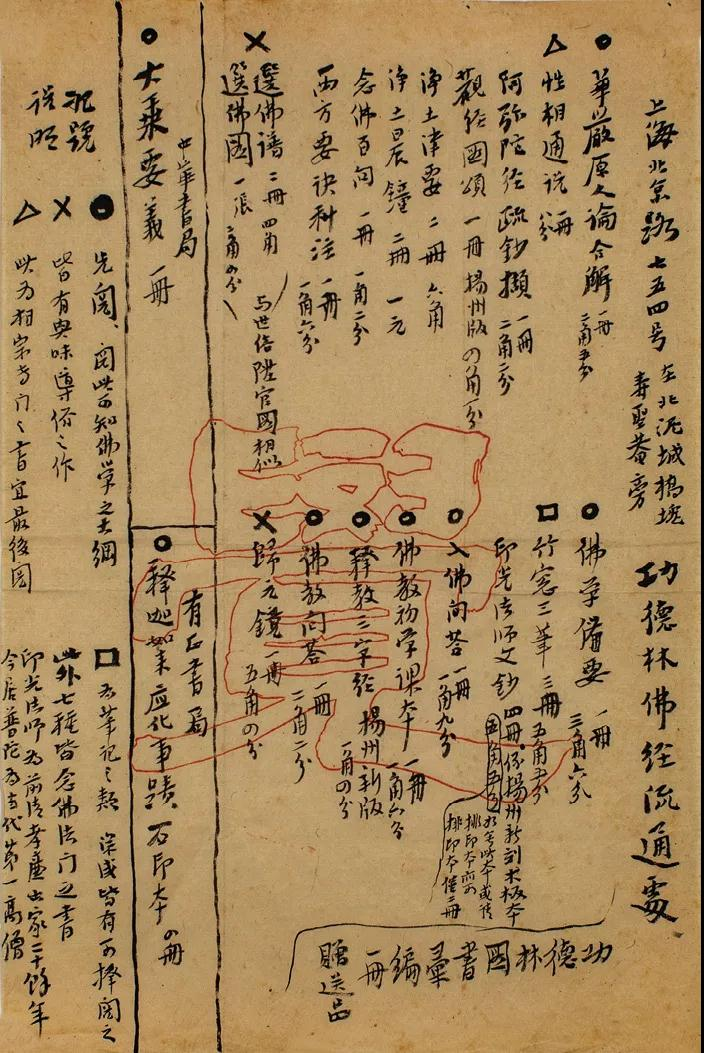 上海北京路七五四号
在北泥城橋塊
壽聖菴旁
功德林佛經流通處
○ 華嚴原人論合解 一冊 二角五分
△ 性相通説 一冊
阿弥陀经疏鈔擷 一冊 二角二分
觀经圖頌 一冊 揚州版 の角一分
淨土津要 二冊 六角
淨土晨鐘 二冊 一元
念佛百问 一冊 一角二分
西方要诀科注 一冊 一角六分
× 選佛谱 二冊 四角
選佛圖 一張 二角の分
与世俗陞官圖相似
○ 佛学備要 一冊 三角六分
□ 竹窓三筆 三冊 五角五分
印光法师文鈔 四冊 係揚州新刻木板本
排印本僅二冊
○ 入佛问荅 一冊 一角九分
○ 佛教初学课本 一冊 一角六分
○ 释教三字经 揚州新版 一角の分
○ 佛教问荅 一冊 二角二分
× 歸元鏡 一冊 五角の分
功德林圖書彙編 一冊
贈送品
○ 中华書局
大乘要義 一冊
○ 有正書局
释迦如来应化事蹟 石印本 の冊
记號
说明
● 先阅、阅此可知佛学之大綱
× 皆有興味導俗之作
△ 此为相宗专门之書宜最後阅
□ 为筆记之類 深浅皆有可擇阅之
此外七種皆念佛法门之書
印光法师为前清孝廉出家二十餘年
今居普陀为当代第一高僧